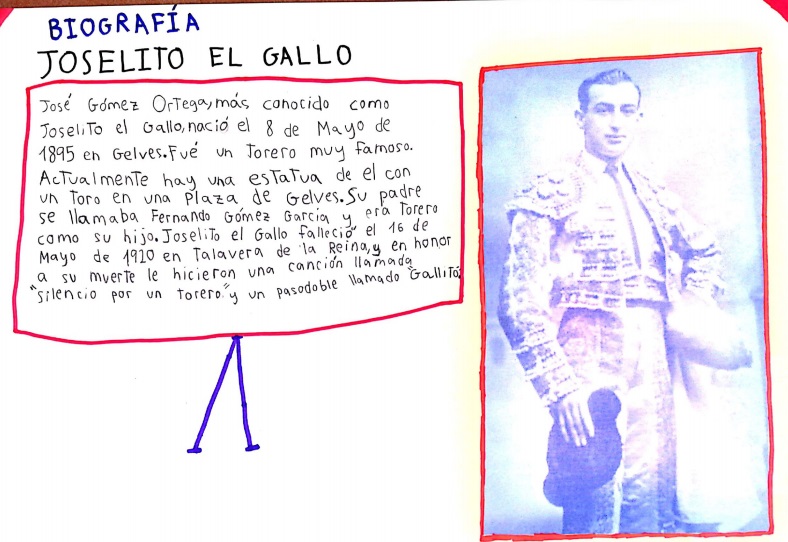 BIOGRAFÍA
JOSELITO EL GALLO
José Gómez Ortega, más conocido como
Joselito el Gallo, nació el 8 de Mayo de
1895 en Gelves. Fué un torero muy famoso.
Actualmente hay una estatua de el con
un toro en una plaza de Gelves. Su padre
se llamaba Fernando Gómez García y era torero
como su hijo. Joselito el Gallo falleció el 16 de
Mayo de 1920 en Talavera de la Reina, y en honor
a su muerte le hicieron una canción llamada
"Silencio por un torero" y un pasodoble llamado "Gallito".